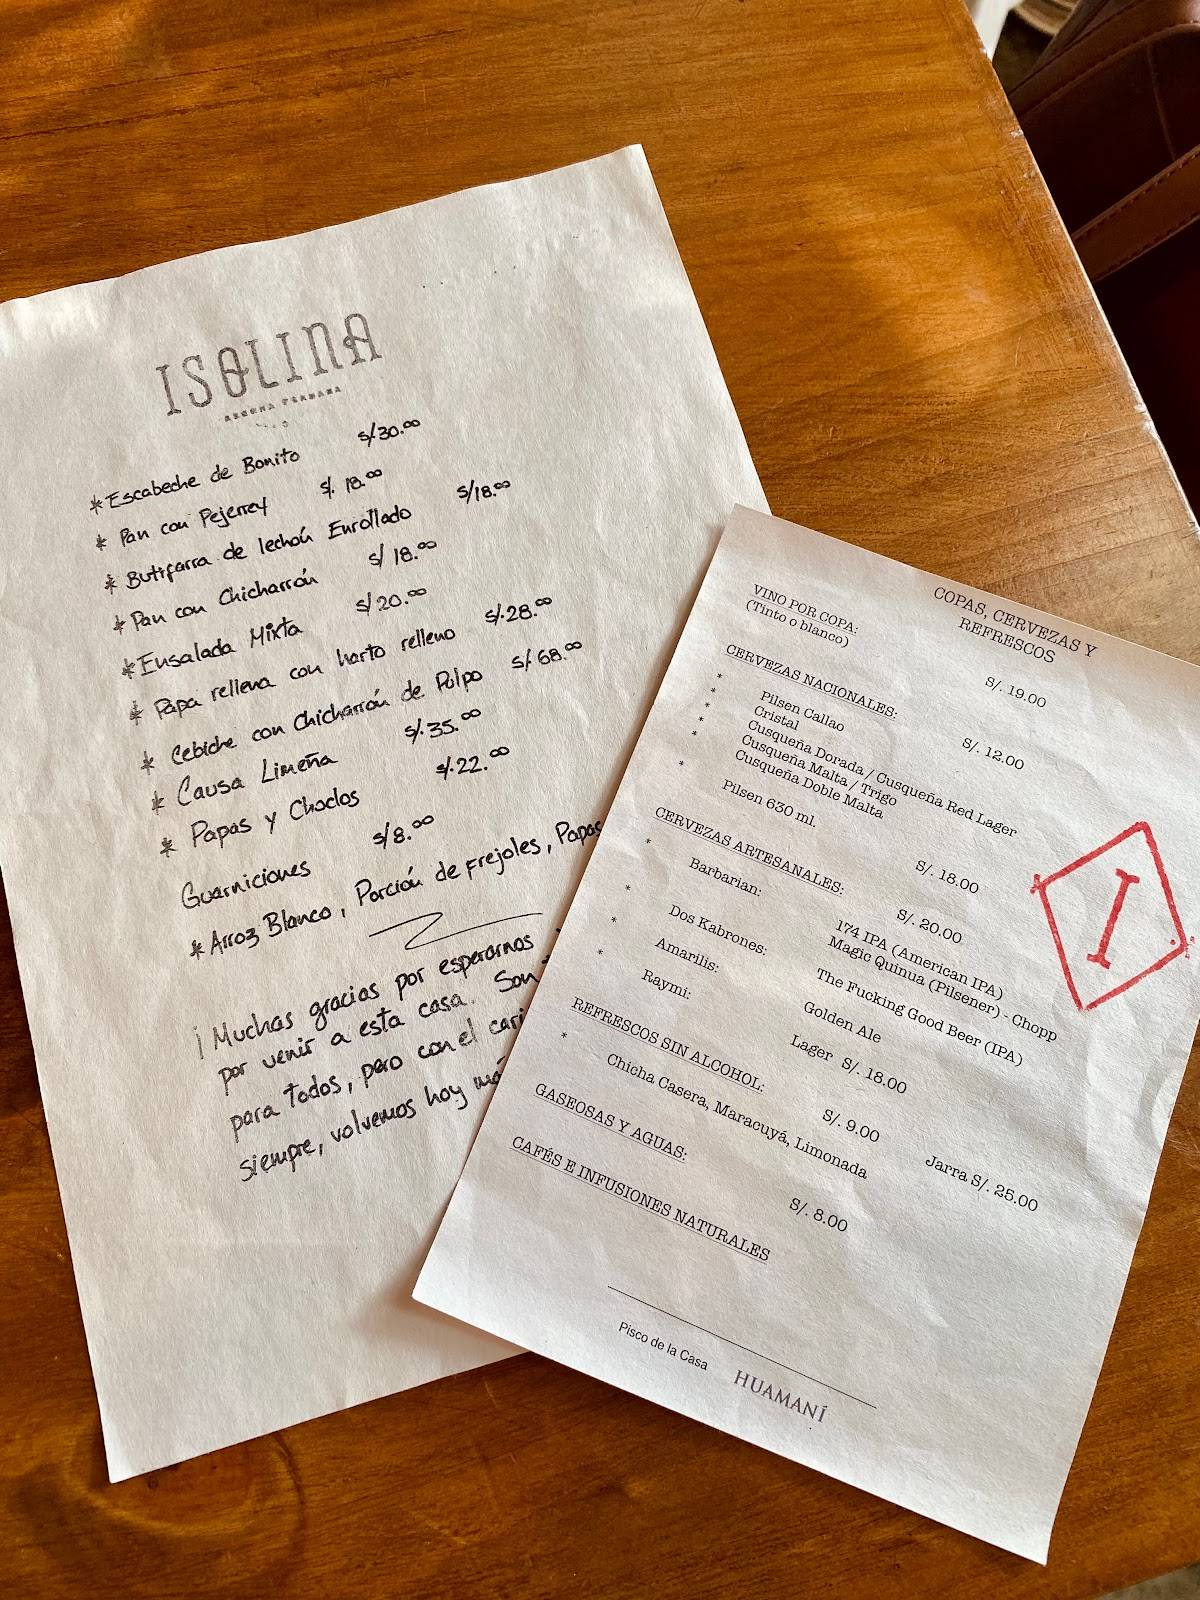 ISOLINA
TABERNA PERUANA
* Escabeche de Bonito S/30.00
* Pan con Pejerrey S/. 18.00
* Butifarra de lechón Enrollado S/18.00
* Pan con Chicharrón S/ 18.00
* Ensalada Mixta S/20.00
* Papa rellena con harto relleno S/.28.00
* Cebiche con Chicharrón de Pulpo S/. 68.00
* Causa Limeña S/.35.00
* Papas y Choclos S/.22.00
Guarniciones S/8.00
* Arroz Blanco, Porción de Frejoles, Papas
¡Muchas gracias por esperarnos
por venir a esta casa. Son
para todos, pero con el cari
siempre, volvemos hoy má
COPAS, CERVEZAS Y
REFRESCOS
VINO POR COPA: S/. 19.00
(Tinto o blanco)
CERVEZAS NACIONALES: S/. 12.00
* Pilsen Callao
* Cristal
* Cusqueña Dorada / Cusqueña Red Lager
* Cusqueña Malta / Trigo
* Cusqueña Doble Malta
* Pilsen 630 ml. S/. 18.00
CERVEZAS ARTESANALES: S/. 20.00
* Barbarian: 174 IPA (American IPA)
Magic Quinua (Pilsener) - Chopp
* Dos Kabrones: The Fucking Good Beer (IPA)
* Amarilis: Golden Ale
* Raymi: Lager S/. 18.00
REFRESCOS SIN ALCOHOL: S/. 9.00 Jarra S/. 25.00
* Chicha Casera, Maracuyá, Limonada
GASEOSAS Y AGUAS: S/. 8.00
CAFÉS E INFUSIONES NATURALES
Pisco de la Casa HUAMANÍ
I